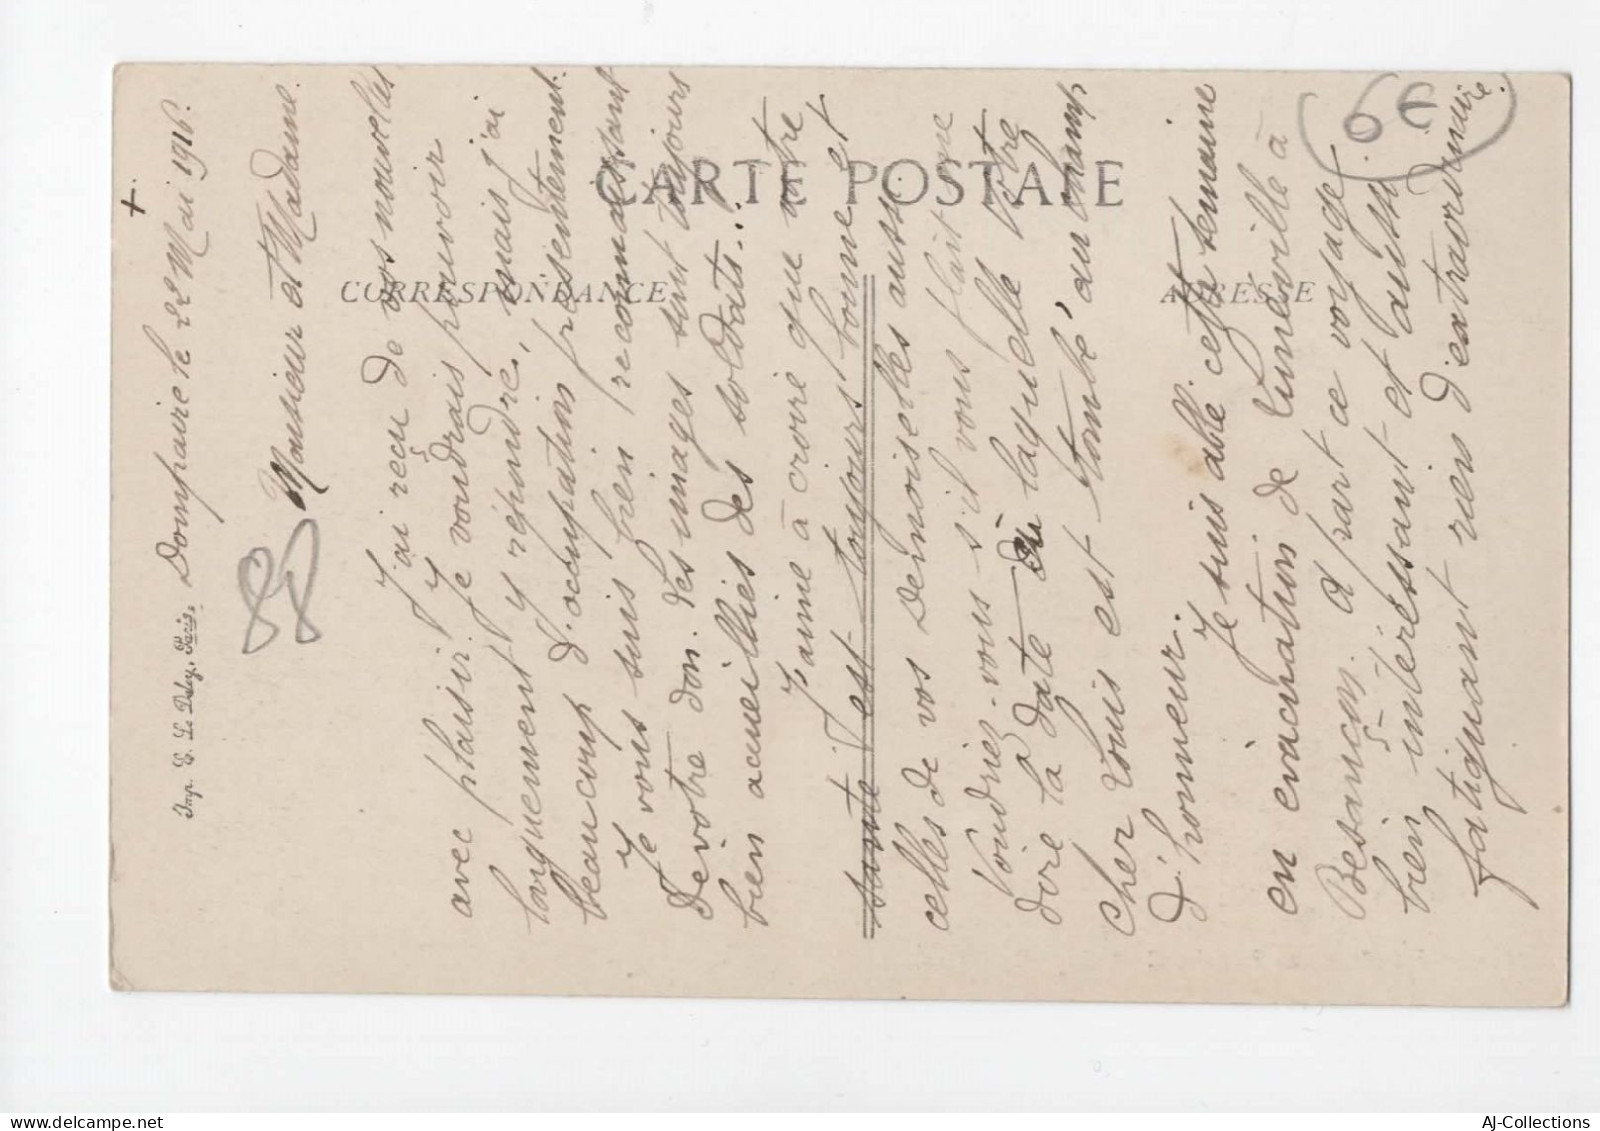 +
Dompaire le 22 Mai 1916.
Monsieur et Madame.
J'ai reçu de vos nouvelles
avec plaisir. Je voudrais pouvoir
longuement y répondre, mais j'ai
beaucoup d'occupations présentement.
Je vous suis bien reconnaissant
de votre don. des images sont toujours
bien accueillies des soldats...
J'aime à croire que votre
santé est toujours bonne et
celles de vos demoiselles aussi
Voudriez-vous s'il vous plaît me
dire la date à laquelle votre
cher Louis est tombé au champ
d'honneur.
Je suis allé cette semaine
en évacuation de Lunéville à
Besançon. à part ce voyage
bien intéressant et aussi
fatiguant rien d'extraordinaire.
CARTE POSTALE
CORRESPONDANCE
ADRESSE
Imp. E. Le Deley, Paris.
88
6€
AJ-Collections